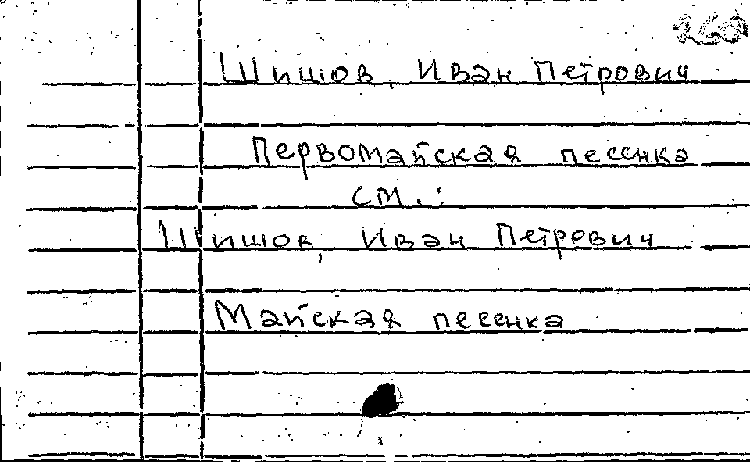 Шишов, Иван Петрович
Первомайская песенка
см.:
Шишов, Иван Петрович
Майская песенка